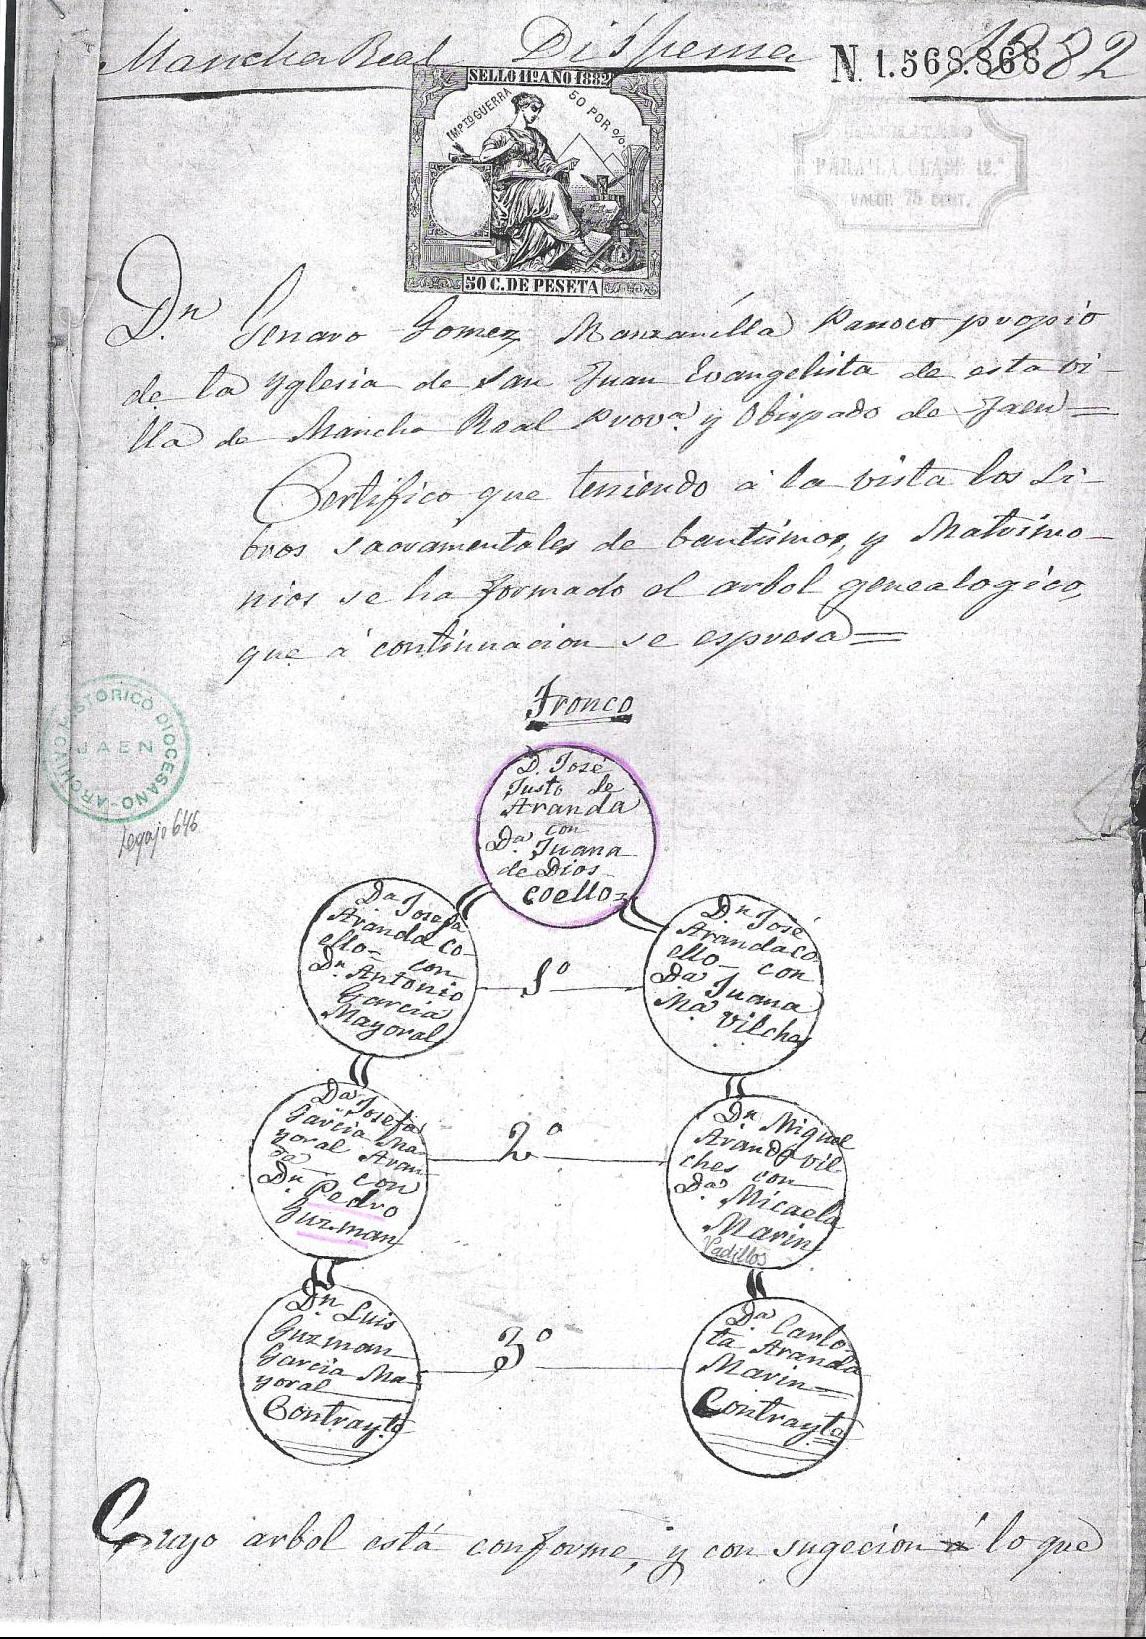 Mancha Real Dispensa 1882
N. 1.568.868
SELLO 11º AÑO 1882
IMPTO GUERRA 50 POR %
50 C. DE PESETA
PARA LA CLASE 12.ª
VALOR 75 CENT.
Dn. Genaro Gomez Manzanilla Parroco propio
de la Yglesia de San Juan Evangelista de esta vi-
lla de Mancha Real Provª. y Obispado de Jaen=
Certifico que teniendo á la vista los Li-
bros sacramentales de bautismos, y Matrimo-
nios se ha formado el arbol genealogico,
que á continuacion se espresa=
Tronco
ARCHIVO HISTORICO DIOCESANO
JAEN
Legajo 646
D. José
Justo de
Aranda
con
Dª. Juana
de Dios
Coello=
Dª Josefa
Aranda Co-
ello= con
Dn. Antonio
Garcia
Mayoral
1º
Dn José
Aranda Co-
ello- con
Dª Juana
Mª Vilches
Dª Josefa
Garcia Ma-
yoral Aran-
da con
Dn. Pedro
Guzman
2º
Dn Miguel
Aranda Vil-
ches con
Dª Micaela
Marin-
Vadillos
Dn Luis
Guzman
Garcia Ma-
yoral
Contrayte
3º
Dª Carlo-
ta Aranda
Marin=
Contrayta
Cuyo arbol está conforme, y con sugecion á lo que